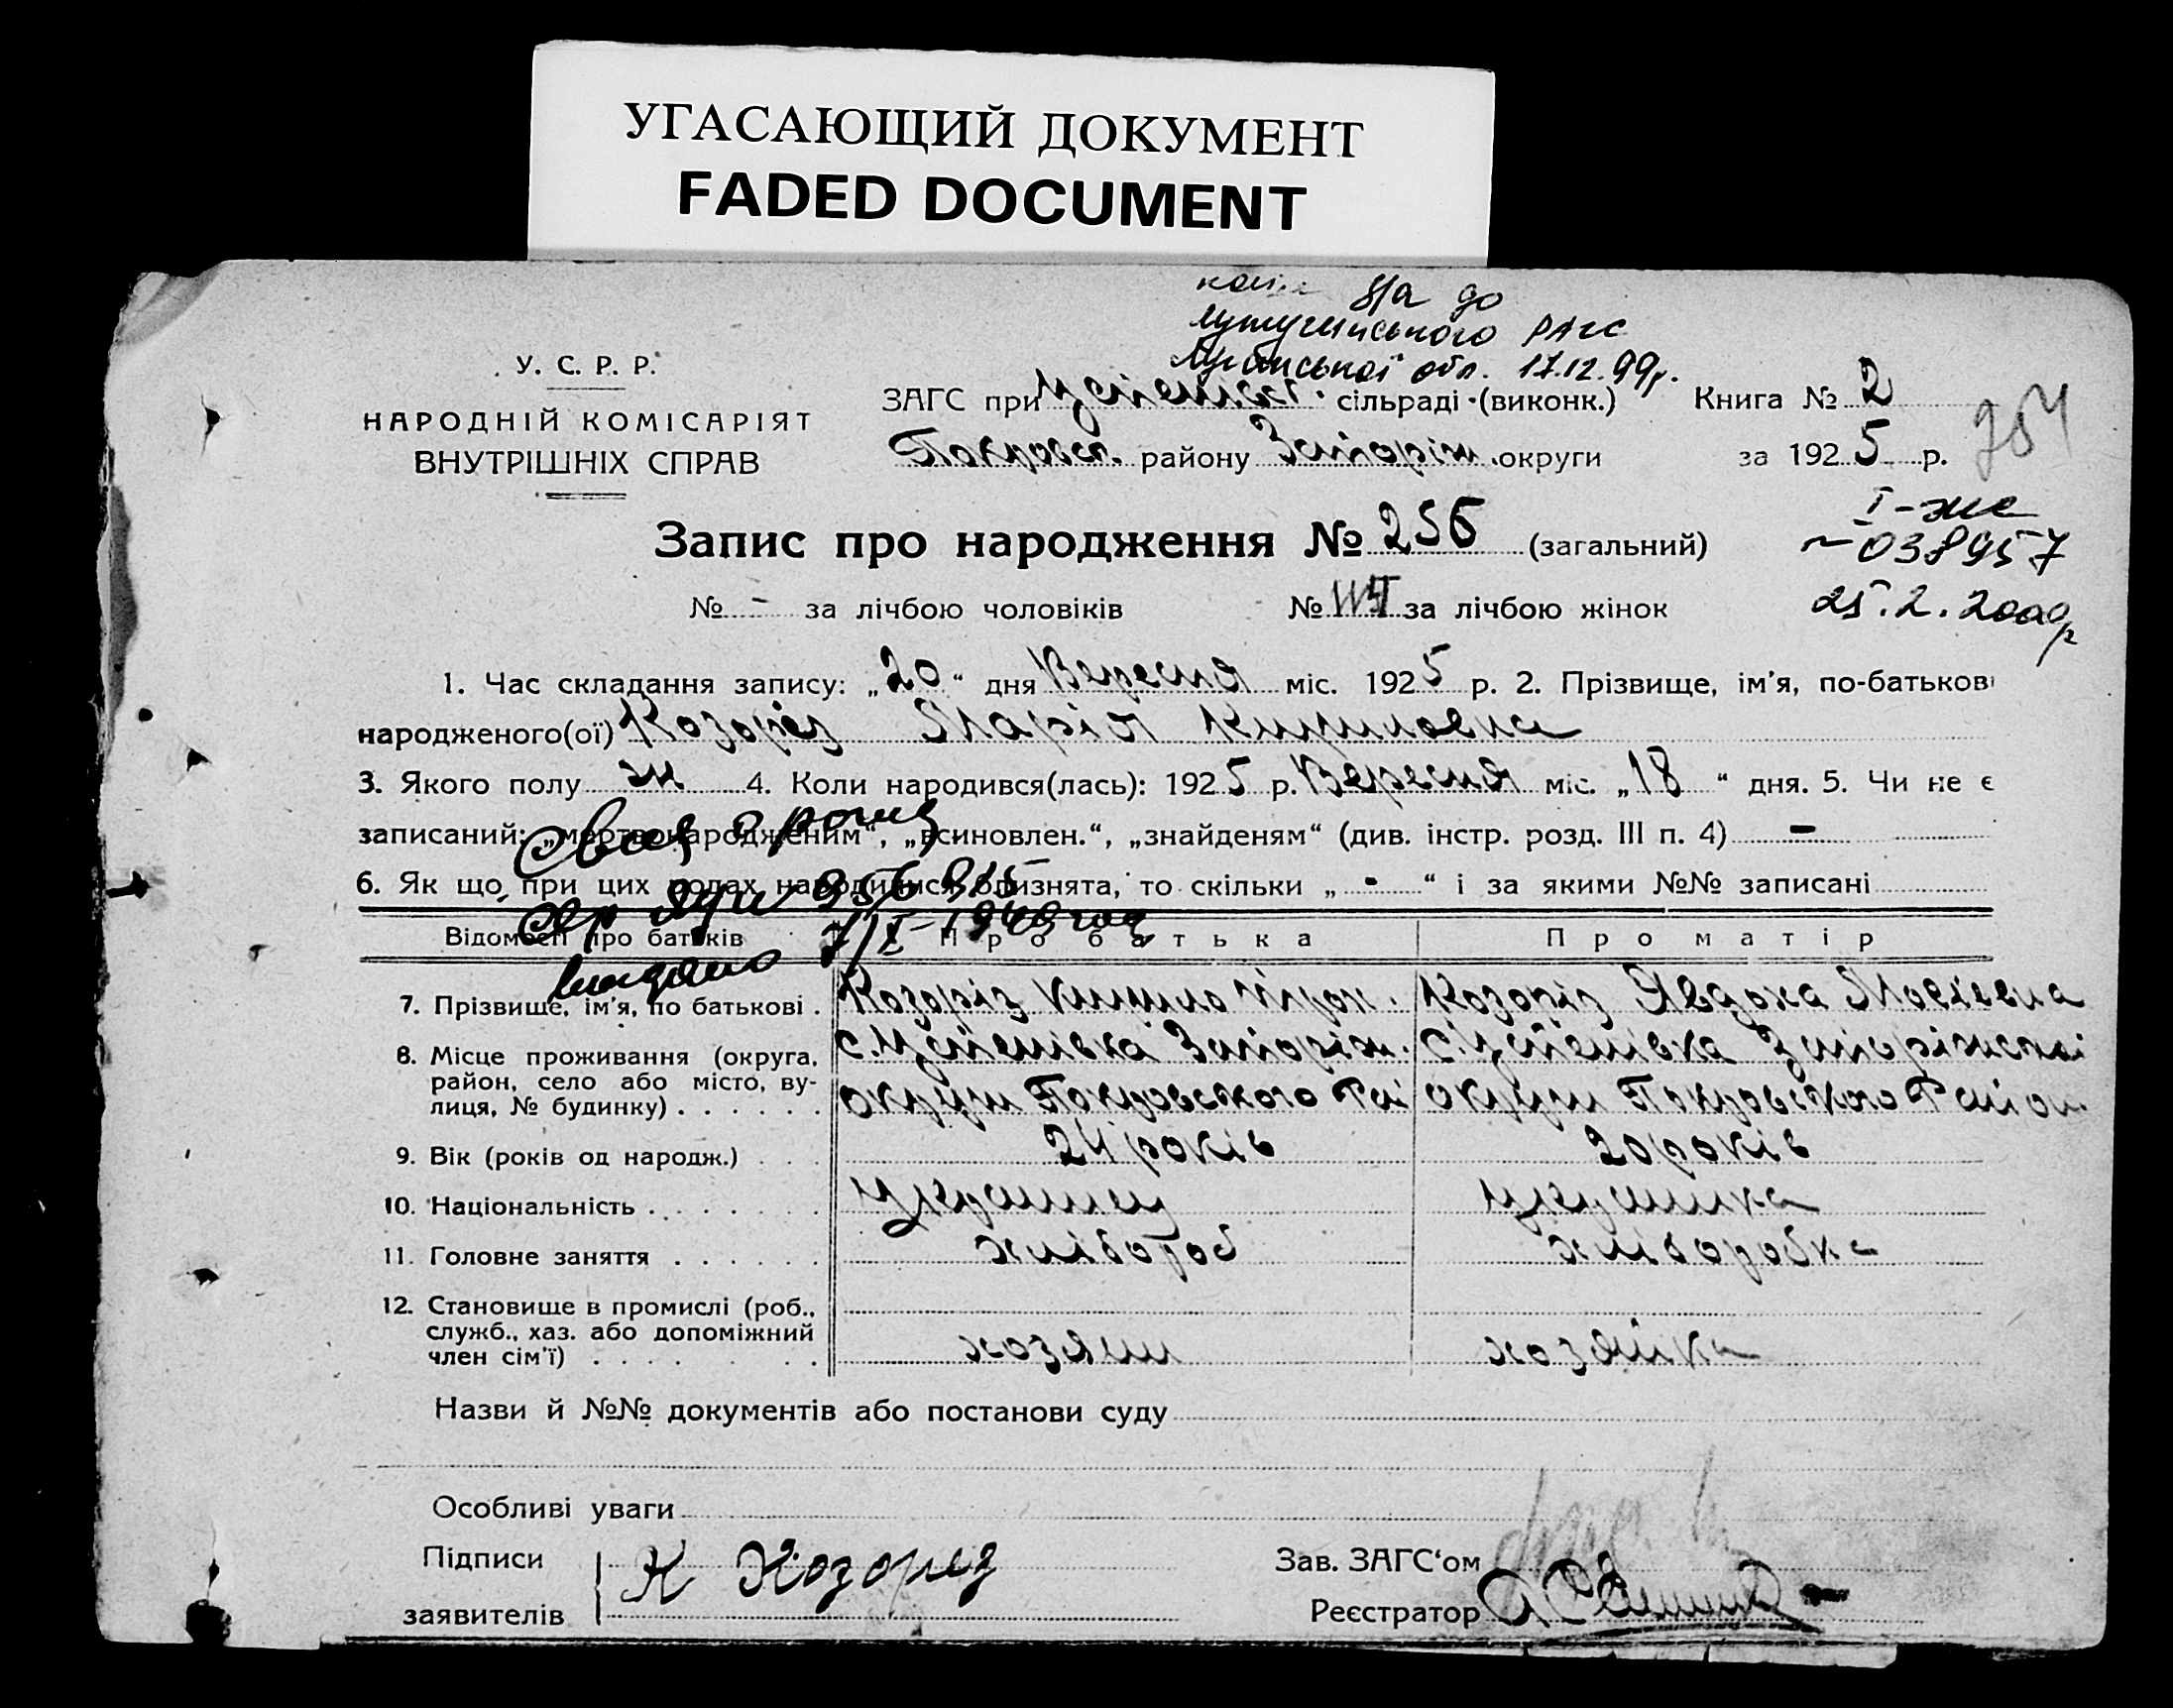 УГАСАЮЩИЙ ДОКУМЕНТ
FADED DOCUMENT
до
Лутугинського РАГС
Луганської обл. 17.12.99р.
У. С. Р. Р.
НАРОДНІЙ КОМІСАРІЯТ
ВНУТРІШНІХ СПРАВ
ЗАГС при Успенівск. сільраді (виконк.) Книга № 2
Покровск. району Запоріж. округи за 1925 р.
254
I-жс
038957
25.2.2000р
Запис про народження № 256 (загальний)
№ - за лічбою чоловіків № за лічбою жінок
1. Час складання запису: „20“ дня Вересня міс. 1925 р. 2. Прізвище, ім'я, по-батькові
народженого(ої) Козоріз Марія Кириловна
3. Якого полу ж 4. Коли народився(лась): 1925 р. Вересня міс. „18“ дня. 5. Чи не є
записаний: „мертвонародженим“, „всиновлен.“, „знайденям“ (див. інстр. розд. III п. 4) -
6. Як що, при цих родах народилися близнята, то скільки „-“ і за якими №№ записані
Відомості про батьків Про батька Про матір
7. Прізвище, ім'я, по батькові . Козоріз Кирило Прок. Козоріз Явдоха Моісеевна
8. Місце проживання (округа, район, село або місто, вулиця, № будинку) . . . . . .
с. Успенівка Запоріж. с. Успенівка Запоріжскої
округи Покровського Рай округи Покровського Район.
9. Вік (років од народж.) . . . 24 років 20 років
10. Національність . . . . . . . . Украинец Украинка
11. Головне заняття . . . . . . хлібороб хліборобка
12. Становище в промислі (роб., служб., хаз. або допоміжний член сім'ї) . . . . . . . хозяин хозяйка
Назви й №№ документів або постанови суду
Особливі уваги
Підписи
заявителів К Козорез
Зав. ЗАГС'ом
Реєстратор